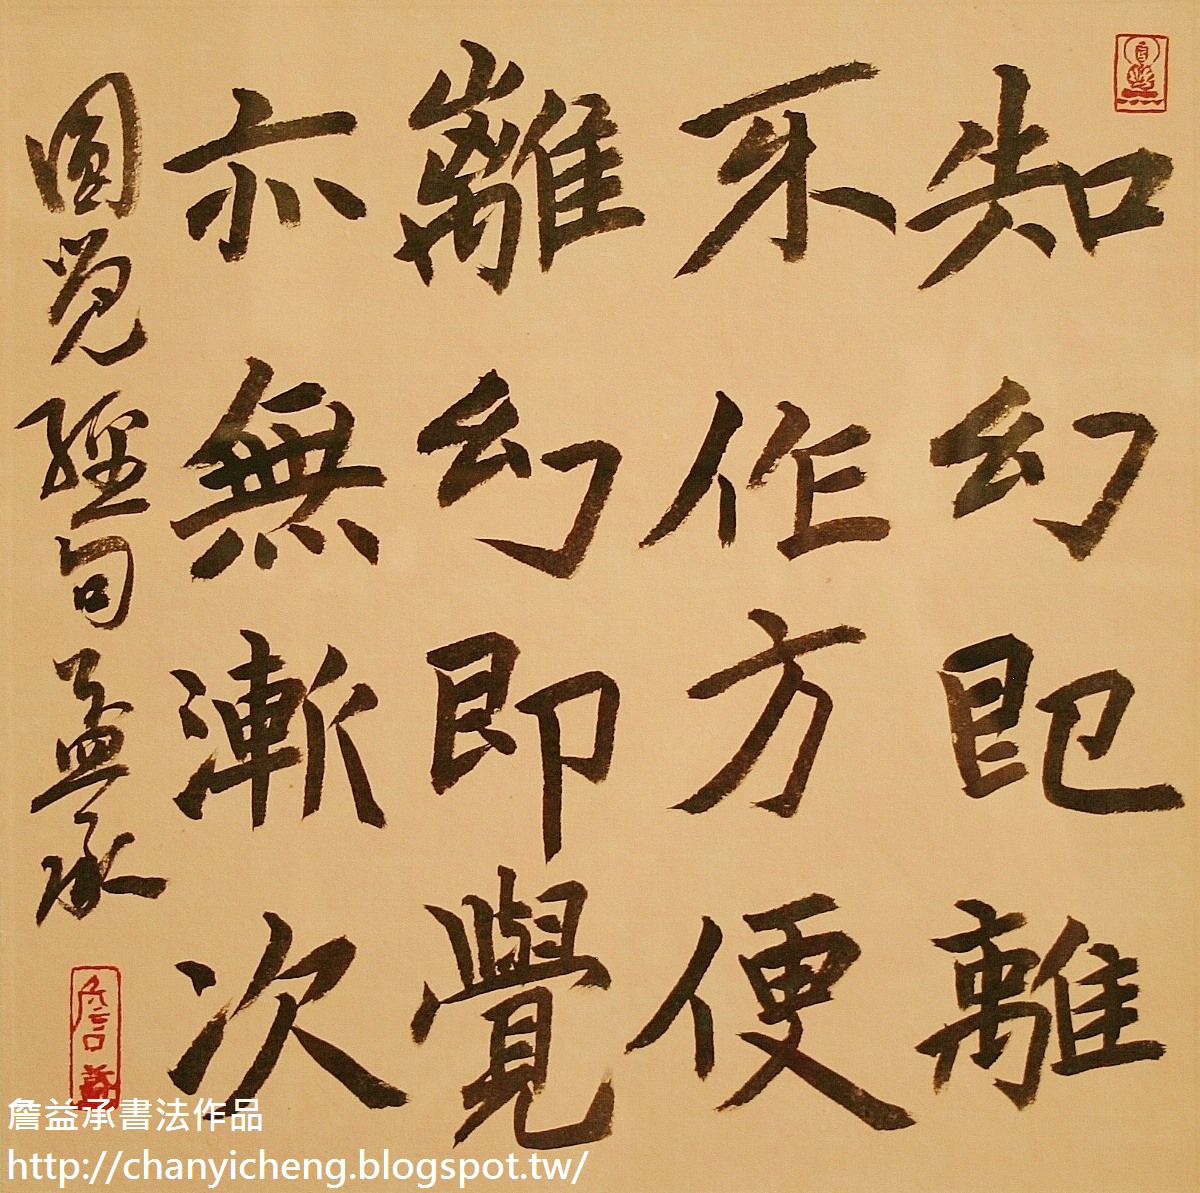 知幻即離
不作方便
離幻即覺
亦無漸次
圓覺經句益承
詹益承書法作品
http://chanyicheng.blogspot.tw/